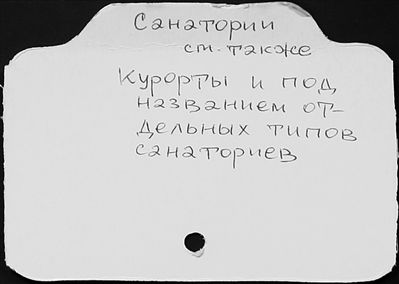 Санатории
см. также
Курорты и под
названием от-
дельных типов
санаториев